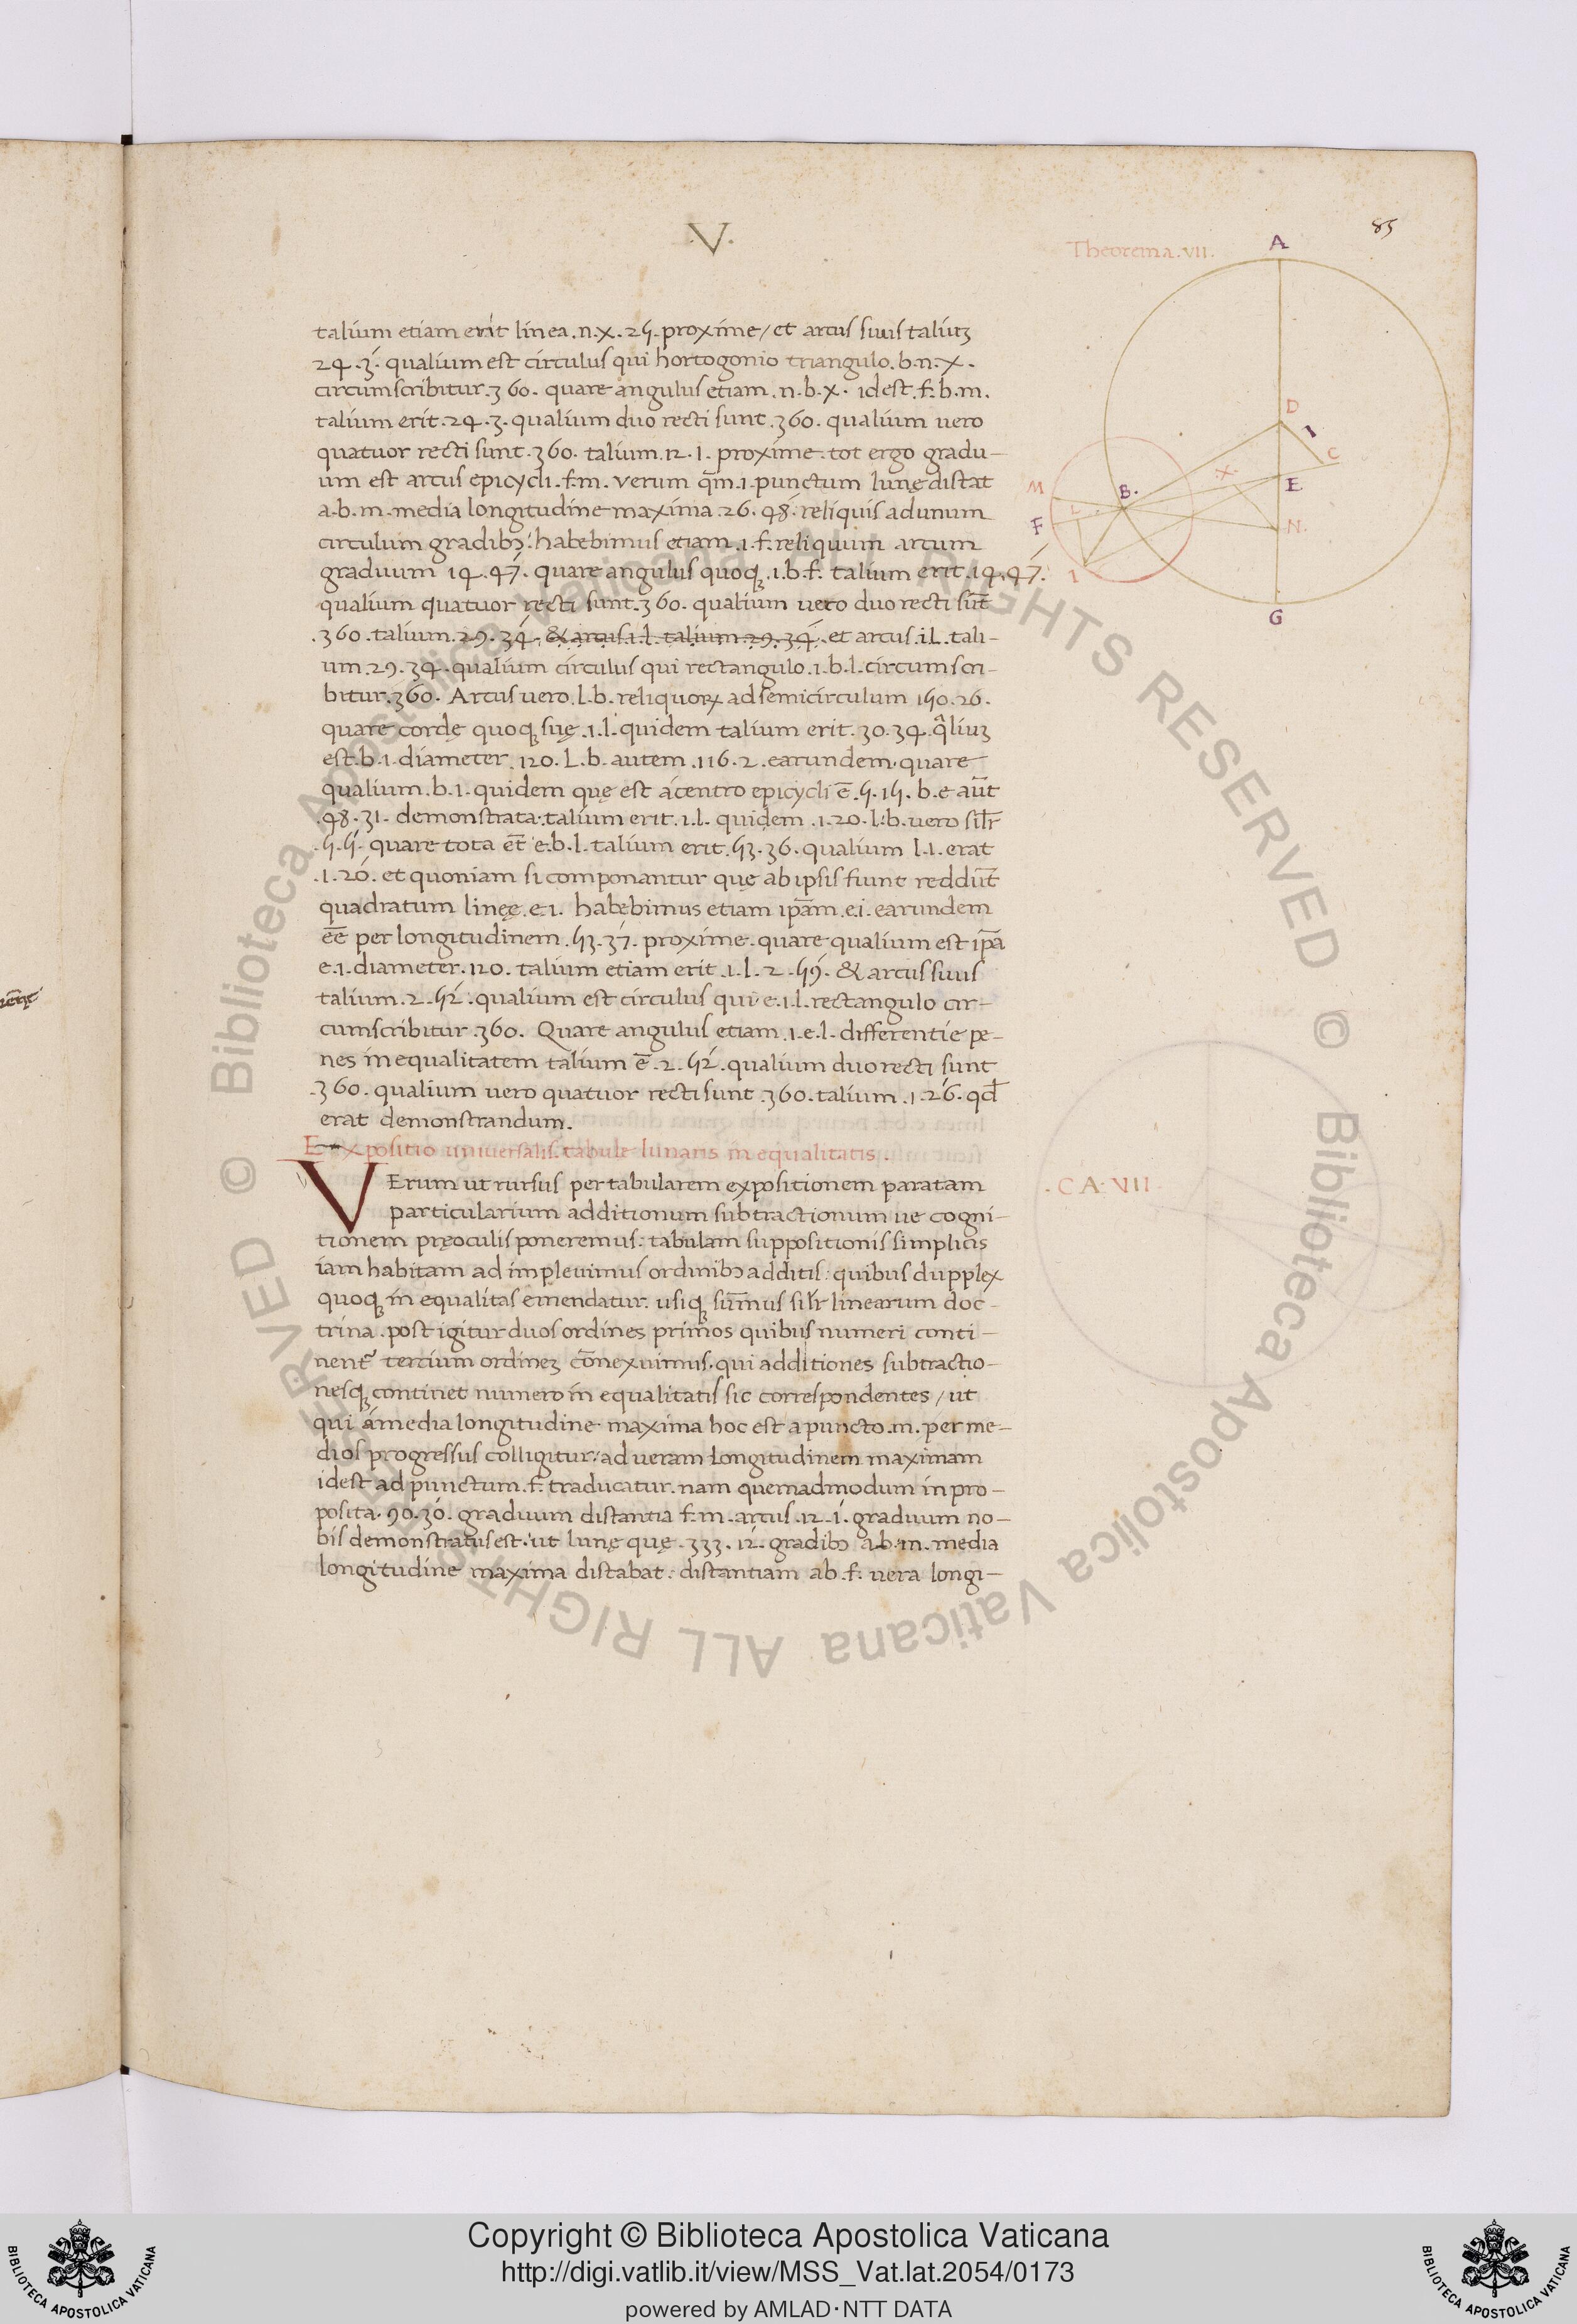 .V.
85
Theorema.VII.
A
D
I
C
X.
E
B.
M
L.
F
N.
I
G
talium etiam erit linea.n.x.25.proxime/et arcus suus taliuʒ
24.3. qualium est circulus qui hortogonio triangulo.b.n.x.
circumscribitur.360. quare angulus etiam.n.b.x. idest.f.b.m.
talium erit.24.3.qualium duo recti sunt.360.qualium uero
quatuor recti sunt.360.talium.12.1.proxime.tot ergo gradu-
um est arcus epicycli.f.m. verum qm̄.1.punctum lunę distat
a.b.m.media longitudine maxima.26.48.reliquis adunum
circulum gradibꝫ: habebimus etiam.1.f.reliquum arcum
graduum 14.47. quare angulus quoqꝫ.1.b.f. talium erit.14.47.
qualium quatuor recti sunt.360.qualium uero duo recti sūt
.360.talium.29.34. & arcus.1.l.talium.29.34. et arcus.i.L.tali-
um.29.34.qualium circulus qui rectangulo.1.b.l.circumscri-
bitur.360. Arcus uero.l.b.reliquoꝝ ad semicirculum 150.26.
quare cordę quoqꝫ suę.1.l.quidem talium erit.30.34.q̄liuʒ
est.b.1.diameter.120.L.b.autem.116.2.earundem.quare
qualium.b.1.quidem quę est ácentro epicycli ē.5.15.b.e aūt
.48.31. demonstrata:talium erit.1.l.quidem.1.20.l.b.uero silr̄
.5.5. quare tota et̄ e.b.l.talium erit.53.36.qualium l.1.erat
.1.20. et quoniam si componantur quę ab ipsis fiunt reddūt
quadratum linęe.e.1. habebimus etiam ip̄am.e.i.earundem
eē per longitudinem.53.37.proxime.quare qualium est ip̄a
e.1.diameter.120. talium etiam erit.1.l.2.59. & arcus suus
talium.2.52.qualium est circulus qui.e.1.l.rectangulo cir-
cumscribitur.360. Quare angulus etiam.1.e.l.differentie pe-
nes inequalitatem talium ē.2.52.qualium duo recti sunt
.360.qualium uero quatuor recti sunt.360.talium.1.26.qđ
erat demonstrandum.
Expositio uniuersalis.tabule lunaris in equalitatis.
.CA.VII.
VErum ut rursus per tabularem expositionem paratam
particularium additionum subtractionum ue cogni-
tionem pręoculis poneremus: tabulam suppositionis simplicis
iam habitam ad impleuimus ordinibꝫ additis: quibus dupplex
quoqꝫ in equalitas emendatur. usiqꝫ sum̄us silr̄ linearum doc-
trina.post igitur duos ordines primos quibus numeri conti-
nent᷑ tercium ordineʒ cōnexuimus.qui additiones subtractio-
nesqꝫ continet numero in equalitatis sic correspondentes/ut
qui ámedia longitudine maxima hoc est a puncto.m.per me-
dios progressus colligitur: ad ueram longitudinem maximam
idest ad punctum.f.traducatur.nam quemadmodum in pro-
posita.90.30.graduum distantia f.m.arcus.12.1.graduum no-
bis demonstratus est.ut lunę quę.333.12.gradibꝫ a.b.m.media
longitudine maxima distabat: distantiam ab.f.uera longi-
Copyright © Biblioteca Apostolica Vaticana
http://digi.vatlib.it/view/MSS_Vat.lat.2054/0173
powered by AMLAD·NTT DATA
BIBLIOTECA APOSTOLICA VATICANA
BIBLIOTECA APOSTOLICA VATICANA
© Biblioteca Apostolica Vaticana ALL RIGHTS RESERVED
© Biblioteca Apostolica Vaticana ALL RIGHTS RESERVED